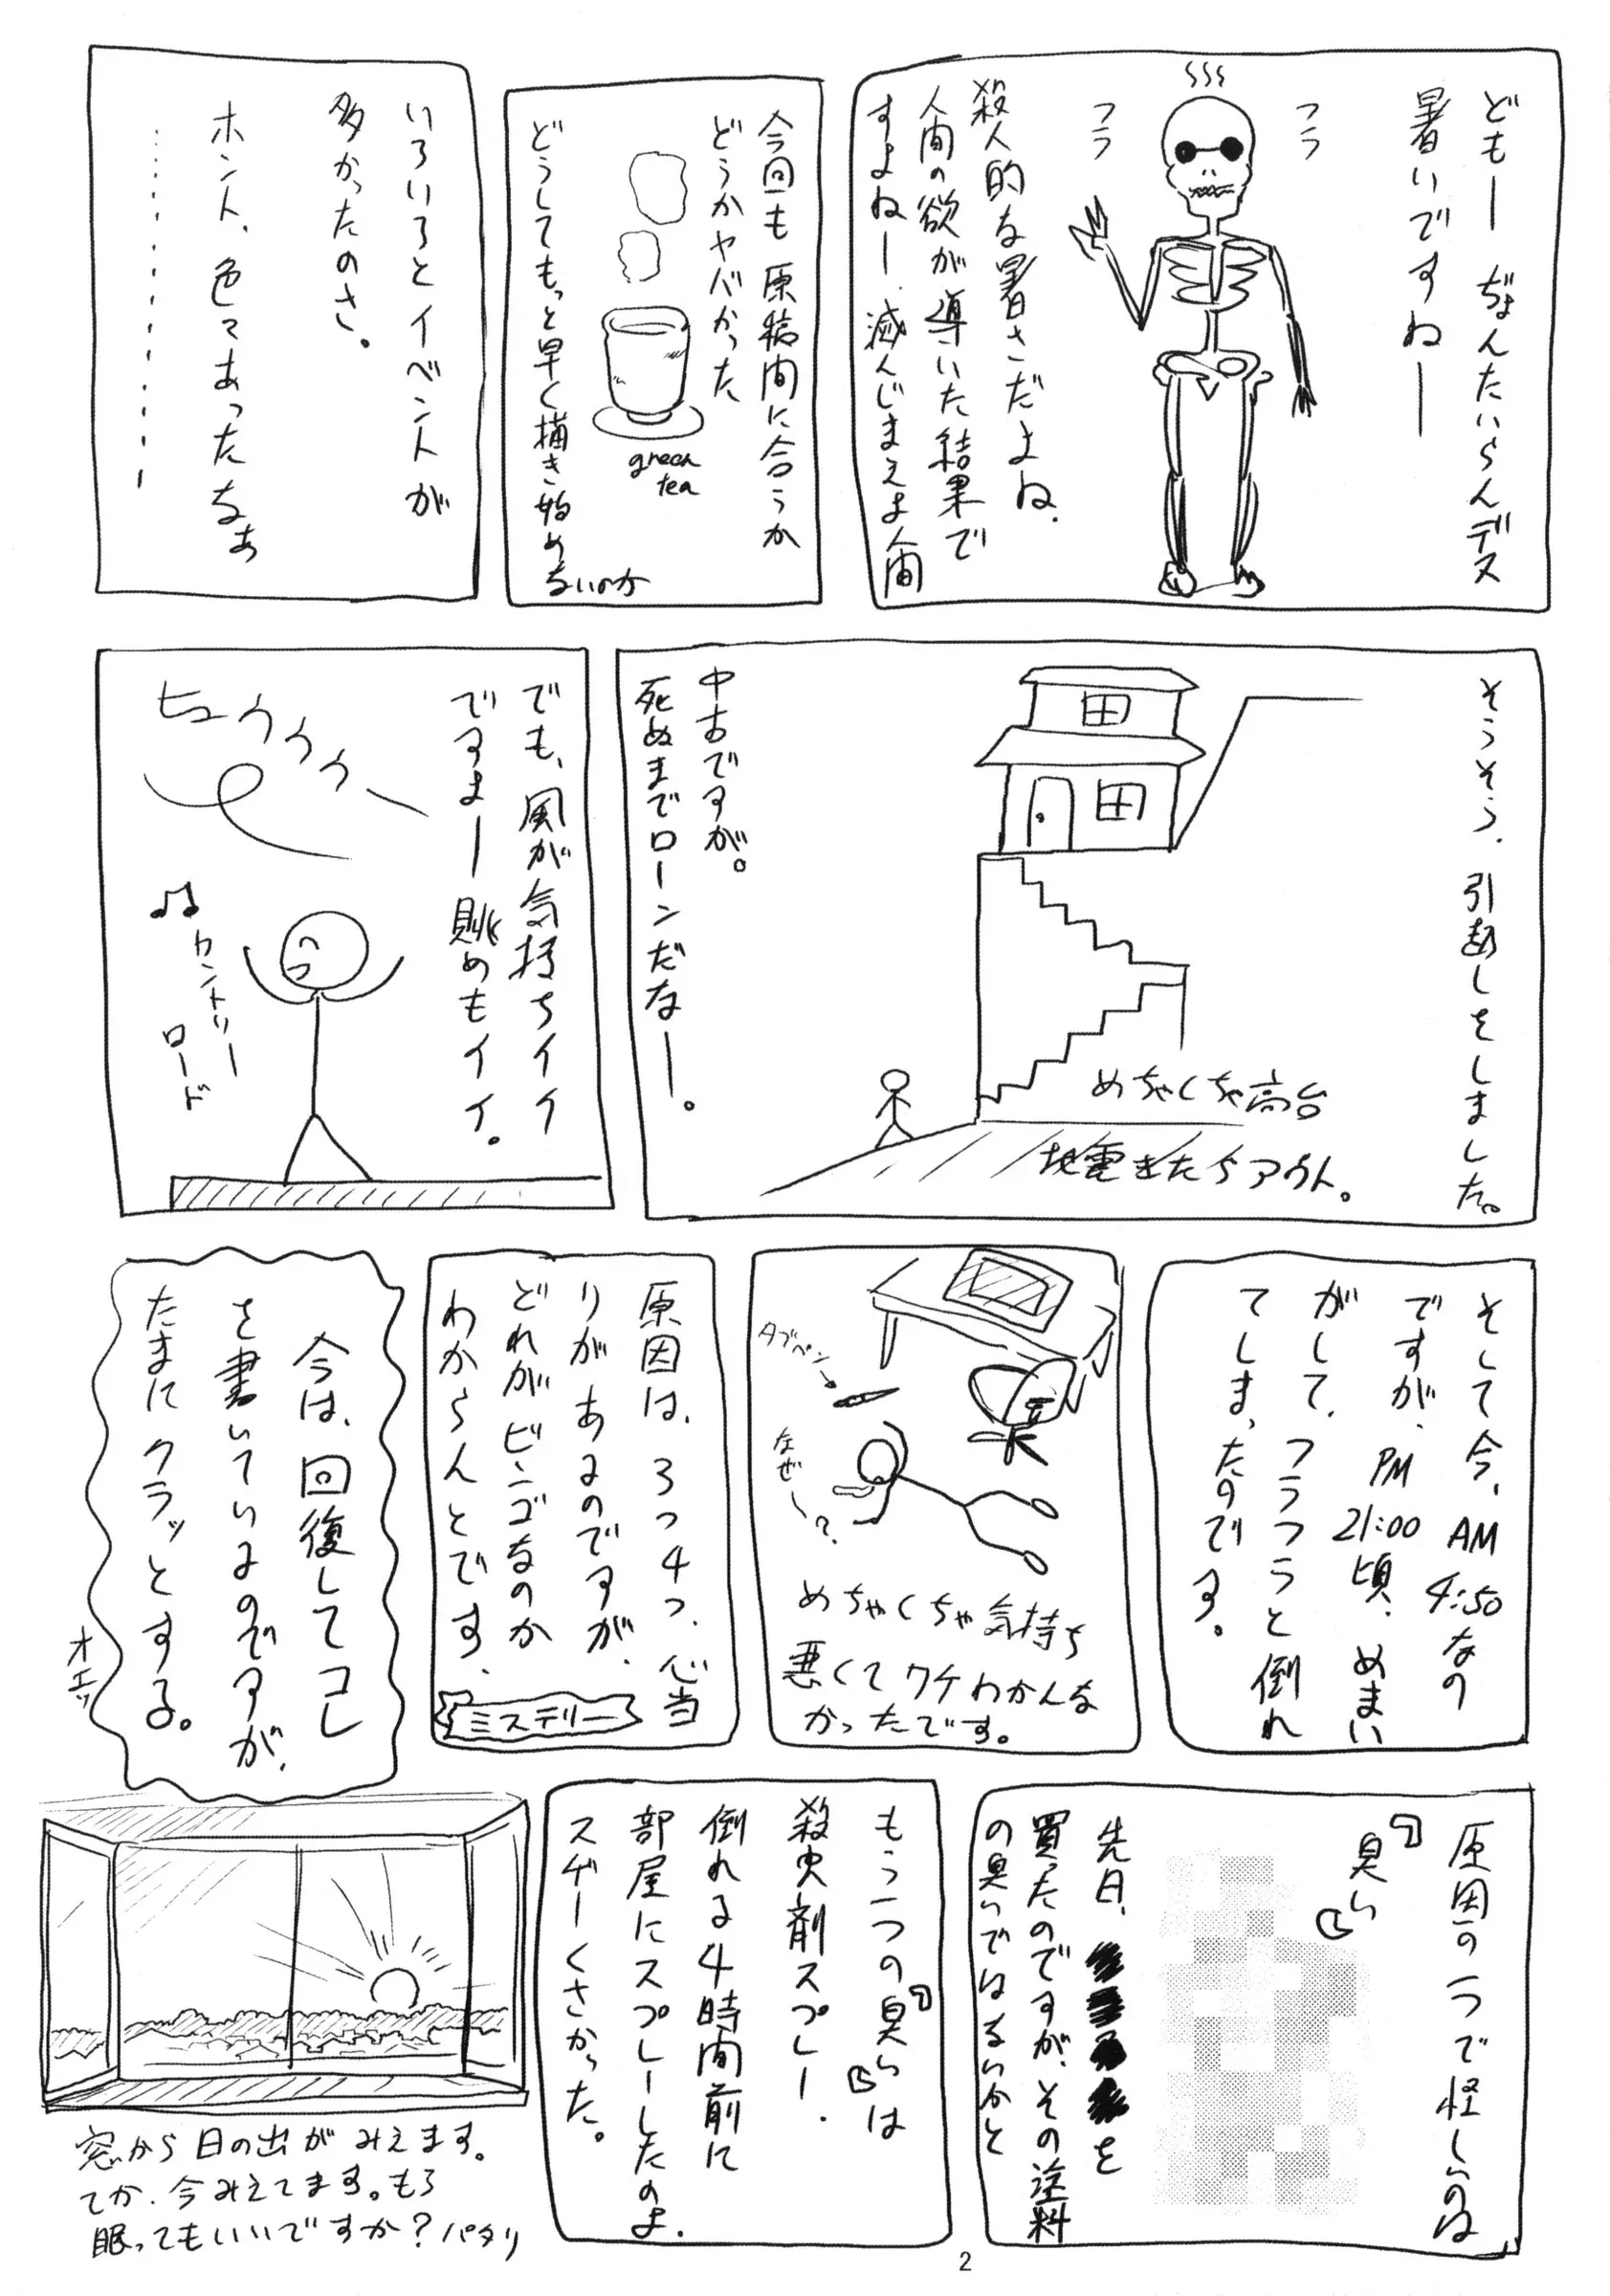 どもー ぢょんたいらんデス
暑いですねー
フラ
フラ
殺人的な暑さだよね.
人間の欲が導いた結果で
すよねー.滅んじまえよ人間
今回も原稿間に合うか
どうかヤバかった
green
tea
どうしてもっと早く描き始め
ないのか
いろいろとイベントが
多かったのさ。
ホント、色々あったなぁ
…………
そうそう.引越しをしました。
めちゃくちゃ高台
地震きたらアウト。
中古ですが。
死ぬまでローンだなー。
でも、風が気持ちイイ
ですよー眺めもイイ。
ヒュウウウー
♫カントリー
ロード
そして今、AM4:50なの
ですが、PM21:00頃、めまい
がして、フラフラっと倒れ
てしまったのです。
タブペン
なぜ〜?
めちゃくちゃ気持ち
悪くてワケわかんな
かったです。
原因は、3つ4つ、心当
りがあるのですが、
どれがビンゴなのか
わからんとです.
ミステリー
今は、回復してコレ
を書いているのですが、
たまにクラッとする。
オエッ
原因の一つで怪しいのは
『臭い』
先日、を
買ったのですが、その塗料
の臭いではるいかと
もう一つの『臭い』は
殺虫剤スプレー.
倒れる4時間前に
部屋にスプレーしたのよ.
スゲーくさかった。
窓から日の出がみえます。
てか、今みえてます。もう
眠ってもいいですか？パタリ
2